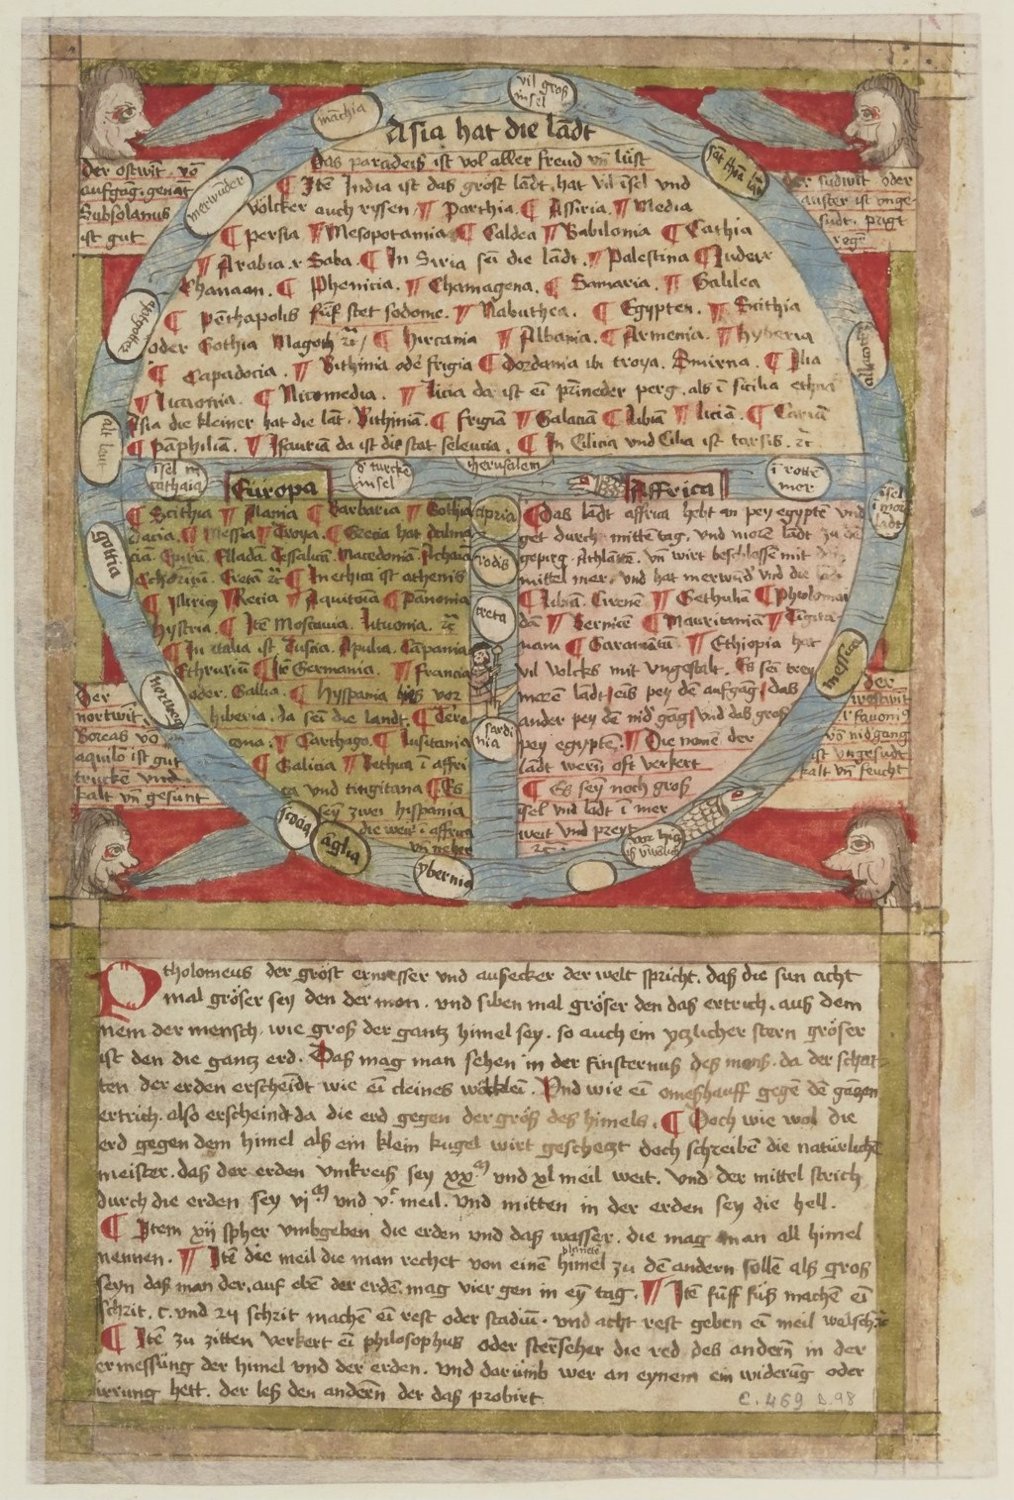 vil groß
insel
manchia
Asia hat die lādt
merwunder
das paradeiß ist vol aller freud vñ lust
¶ Itē India ist das gröst lādt. hat vil īsel vnd
völcker auch ryssen ¶ Parthia. ¶ Assiria. ¶ Media
¶ Persia ¶ Mesopotamia ¶ Caldea ¶ Babilonia ¶ Cathia
¶ Arabia. Saba. ¶ In Siria sein die lādt. ¶ Palestina ¶ Judee
Chanaan. ¶ Phenicia. ¶ Chamagena. ¶ Samaria. ¶ Galilea
¶ Pēthapolis fūf stet sodome. ¶ Nabuthea. ¶ Egypten. ¶ Scithia
oder Gothia Magoth ¶ Hircania ¶ Albania. ¶ Armenia. ¶ Hyberia
¶ Capadocia. ¶ Bithinia oder frigia ¶ Dordania ibi troya. Smirna. ¶ Ilia
¶ Licaonia. ¶ Nicomedia. ¶ Licia da ist eī prīneder perg. als ī sicilia ethna
Asia die kleiner hat die lāt. Bithiniā. ¶ Frigiā ¶ Galaciā ¶ Libiā ¶ liciā. ¶ Cariā
¶ Pāphiliā. ¶ Isauriā da ist die stat seleucia. ¶ In Cilicia vnd Cilia ist tarsis. ꝛc
der ostwīt. vō
aufgāg. genāt
Subsolanus
ist gut
der sudwīt oder
auster ist vnge-
sudt. prīgt
regē
insel in
cathaia
d turcken
insel
Jherusalem
ī roten
mer
Europa
Affrica
¶ Scithia ¶ Alania ¶ Barbaria ¶ Gothia
dacia. ¶ Messia ¶ Troya. ¶ Grecia hat dalma
ciā. Epirū. Elladā. Tessaliā. Macedoniā. Achaia
Cretā ꝛc ¶ In ethica ist athenis
¶ Illiricū ¶ Recia ¶ Aquitonia ¶ Pānonia
hystria. ¶ Itē Moscauia. lituonia. ꝛc
¶ In italia ist Tuscia. Apulia. Cāpania
Ethruriā ¶ Itē Germania. ¶ Francia
oder Gallia. ¶ hyspania bis vor
hiberia. da sein die landt. ¶ Tera
cona. ¶ Carthago. ¶ lusitania
¶ Galicia ¶ Bethica ī affri
ca vnd tingitana ¶ Es
seyn zwei hispania
die weit ī affrica
vñ neher
cipria
rodis
creta
sardi
nia
¶ das lādt affrica hebt an pey egyptē vnd
get durch mittē tag. vnd morē lādt zu de
gepirg. Athlātē. vñ wirt beschlossen mit dē
mittel mer. vnd hat merwūd vnd die lādt
¶ Libiā. Cirenē ¶ Gethuliā ¶ Phtoloma
dā ¶ Berniē ¶ Mauritaniā ¶ Tigita-
nam ¶ Garamātū ¶ Ethiopia hat
vil volcks mit vngestalt. Es sein zwey
morē lādt. eis pey dē aufgāg. das
ander pey dē nid gāg vnd das groß
pey egyptē. ¶ Die nomē der
lādt werdē oft verkert
¶ Es seyn noch groß
isel vnd lādt ī mer
weit vnd preyt
ꝛc.
gottia
norwegi
scocia
āglia
ybernia
Der
nortwīt
Boreas vō
aquilo ist gut
trucken vnd
kalt vñ gesunt
der
westwīt
favoni9
vō nidgang
ist vngesudt
kalt vñ feucht
Ptholomeus der gröst ermesser vnd außecker der welt spricht. daß die sun acht
mal gröser sey den der mon. vnd siben mal gröser den das ertrich. auß dem
nem der mensch. wie groß der gantz himel sey. so auch ein yczlicher stern gröser
ist den die gantz erd. Daß mag man sehen in der finsternuß des mons. da der schat-
ten der erden erscheīdt wie eī cleines wölcklē. Vnd wie eī omeßhauff gegē dē gāczen
ertrich. also erscheindt da die erd gegen der größ des himels. ¶ Doch wie wol die
erd gegen dem himel alß ein klein kugel wirt geschetzt doch schreibē die natürlichē
meister. daß der erden vmkreiß sey xx m vnd xl meil weit. Vnd der mittel strich
durch die erden sey vj m vnd vc meil. Vnd mitten in der erden sey die hell.
¶ Item xij spher vmbgeben die erden vnd das wasser. die mag man all himel
nennen. ¶ Itē die meil die man rechet von einē himel planetē zu dē andern sollē als groß
seyn daß man der. auf ebē der erdē. mag vier gen in ey tag. ¶ Itē fūff fuß machē eī
schrit. c. vnd 24 schrit machē eī rest oder stadiū. vnd acht rest geben eī meil walsche
¶ Itē zu zitten verkert eī philosophus oder sternseher die red des andern in der
ermessung der himel vnd der erden. vnd darumb wer an eynem ein widerūg oder
irrung hett. der leß den andern der das probirt
C. 469 D. 98